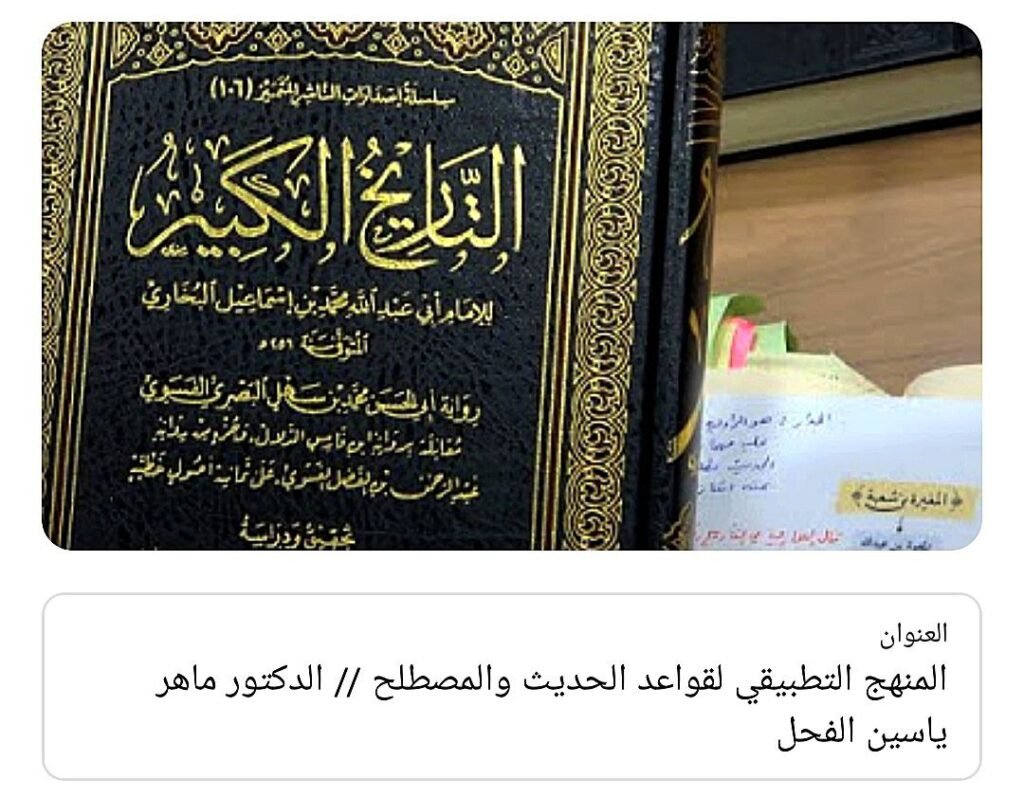 سلسلة إصدارات الناشر المتميز (١٠٦)
التَّارِيخُ الكَبِيْر
للإمام أبي عبد الله محمد بن إسماعيل البخاري
المتوفى سنة ٢٥٦ هـ
رواية أبي الحسن محمد بن سهل البصري الفسوي
مقابلة برواية ابن فارس الدلال، وجزء من رواية
عبد الرحمن بن الفضل الفسوي، على ثمانية أصول خطية
تحقيق ودراسة
المغيرة بن شعبة
العنوان
المنهج التطبيقي لقواعد الحديث والمصطلح // الدكتور ماهر
ياسين الفحل